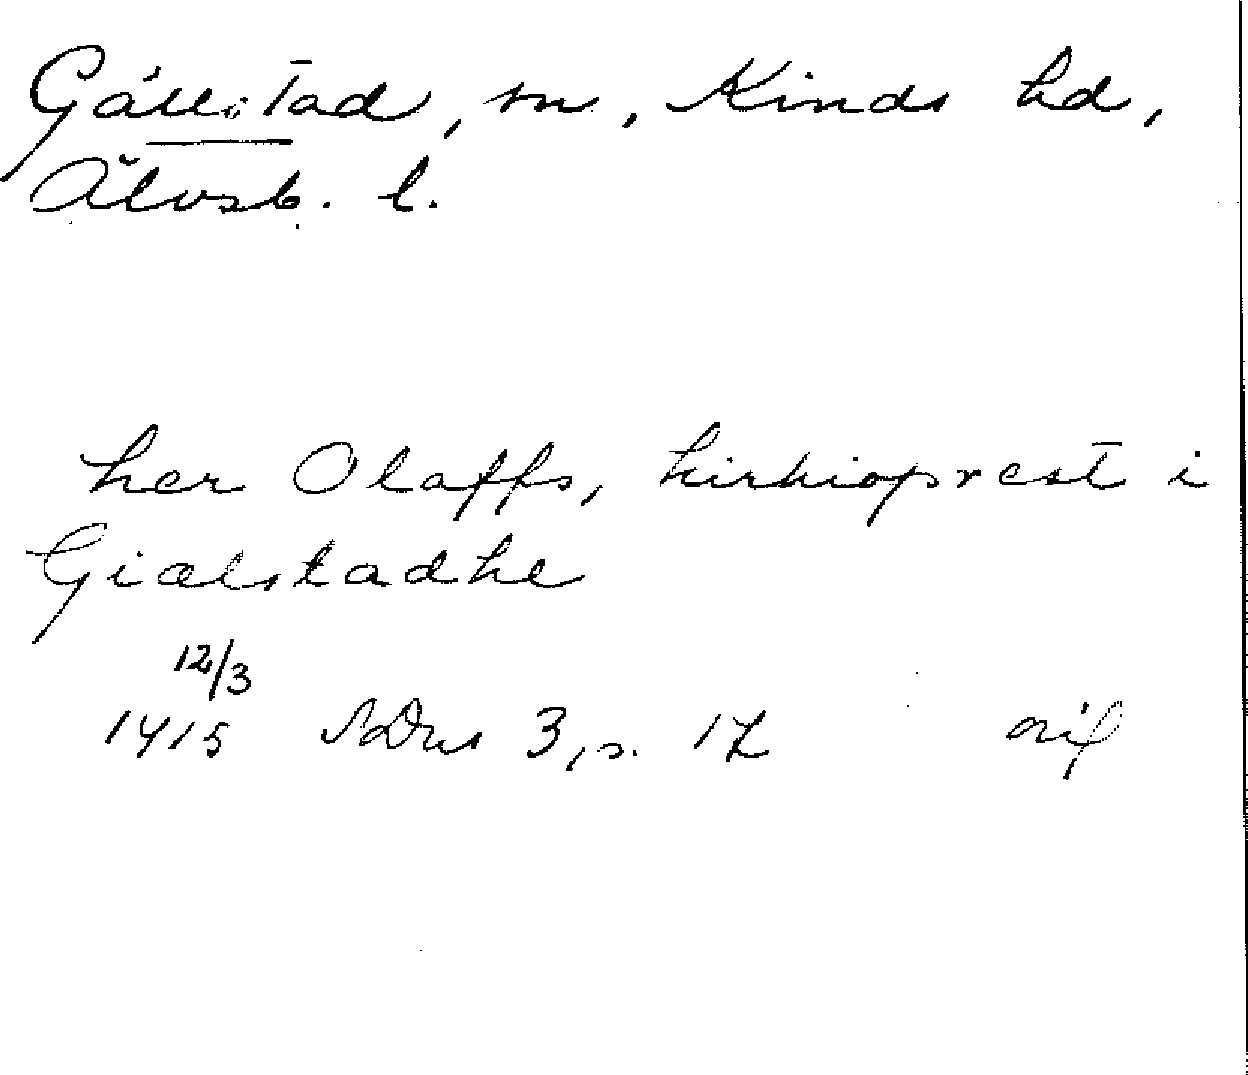 Gällstad, sn, Kinds hd,
Älvsb. l.
her Olaffs, kirkioprest i
Giælstadhe
12/3
1415 SDns 3, s. 17